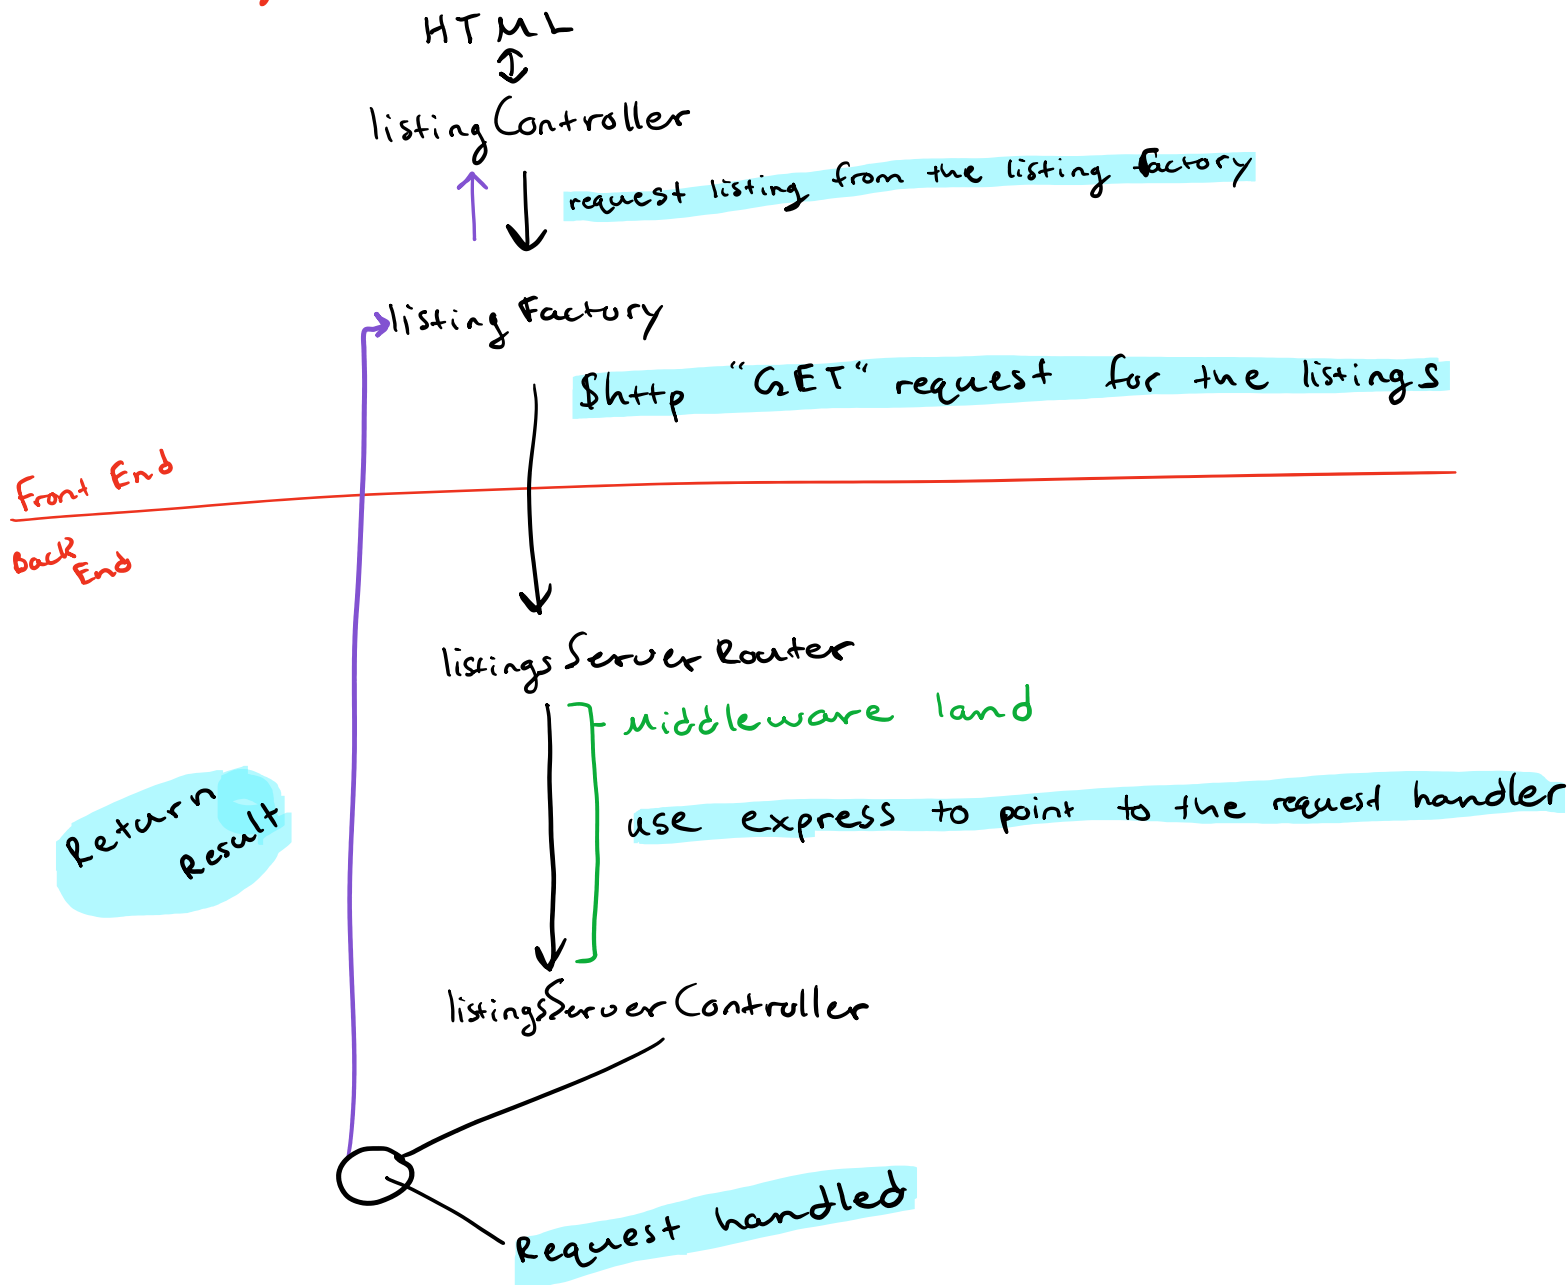 HTML
listingController
request listing from the listing factory
listing Factory
$http "GET" request for the listings
Front End
Back
End
listings Server Router
Middleware land
Return
Result
use express to point to the request handler
listingsServer Controller
Request handled